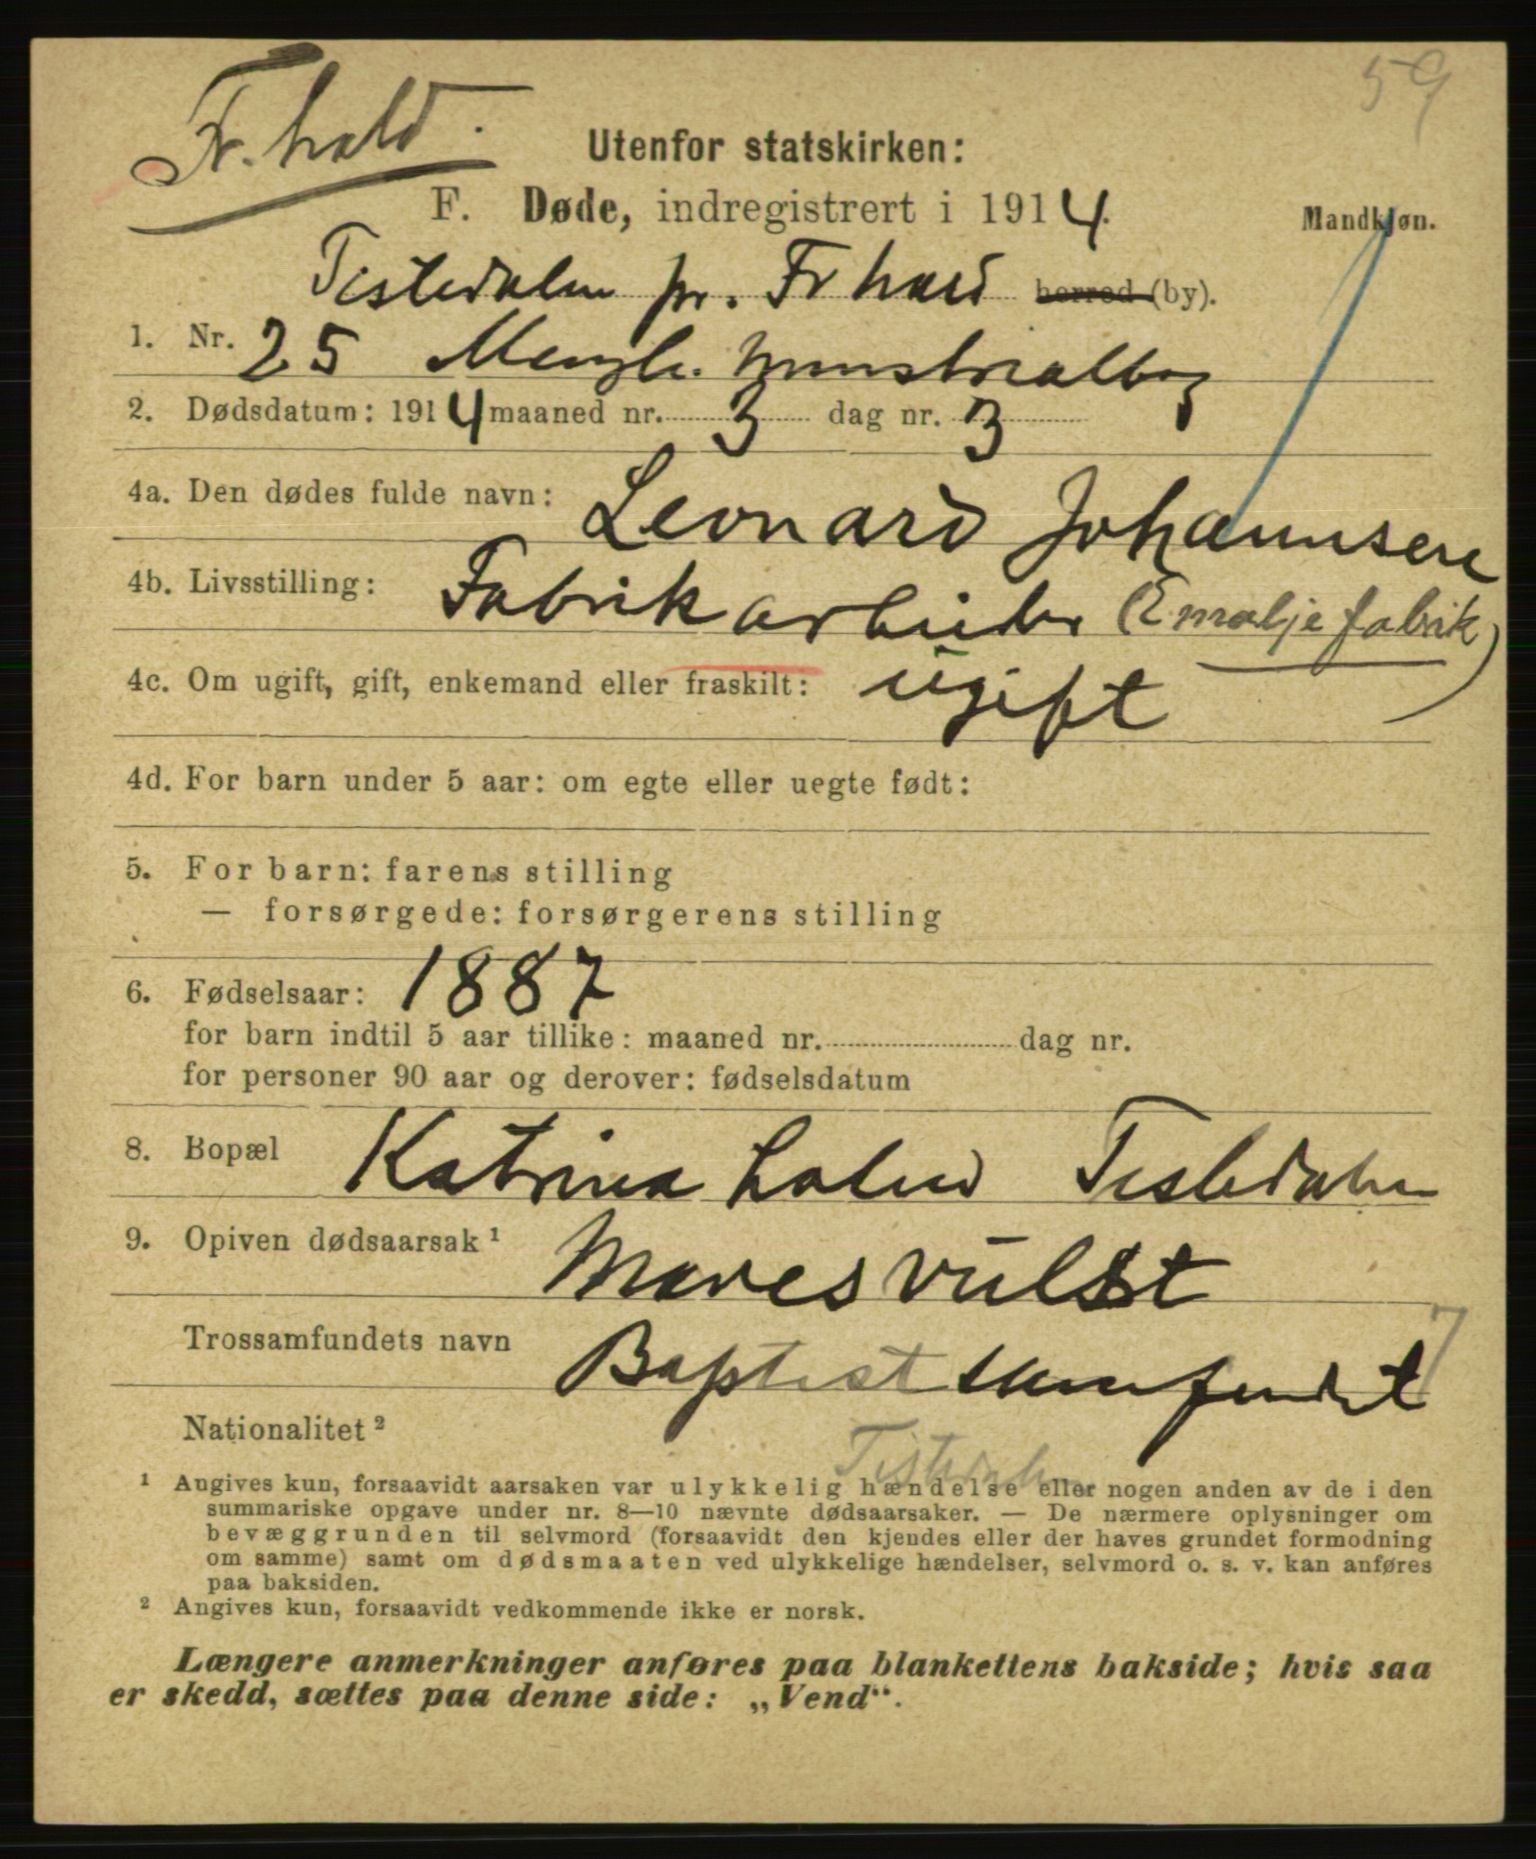 59
Fr.hald.
Utenfor statskirken:
F. Døde, indregistrert i 1914.
Mandkjøn.
Tistedalen pr. Frhald herred (by).
1. Nr. 25 Menigh.
2. Dødsdatum: 1914 maaned nr. 3 dag nr. 3
4a. Den dødes fulde navn: Leonard Johannsen
4b. Livsstilling: Fabrikarbeider (Emaljefabrik)
4c. Om ugift, gift, enkemand eller fraskilt: ugift
4d. For barn under 5 aar: om egte eller uegte født:
5. For barn: farens stilling
— forsørgede: forsørgerens stilling
6. Fødselsaar: 1887
for barn indtil 5 aar tillike: maaned nr. dag nr.
for personer 90 aar og derover: fødselsdatum
8. Bopæl Katrina Tistedalen
9. Opiven dødsaarsak ¹ Mavesvulst
Trossamfundets navn Baptistsamfundet
7
Nationalitet ²
Tistedalen
¹ Angives kun, forsaavidt aarsaken var ulykkelig hændelse eller nogen anden av de i den
summariske opgave under nr. 8—10 nævnte dødsaarsaker. — De nærmere oplysninger om
bevæggrunden til selvmord (forsaavidt den kjendes eller der haves grundet formodning
om samme) samt om dødsmaaten ved ulykkelige hændelser, selvmord o. s. v. kan anføres
paa baksiden.
² Angives kun, forsaavidt vedkommende ikke er norsk.
Længere anmerkninger anføres paa blankettens bakside; hvis saa
er skedd, sættes paa denne side: „Vend“.